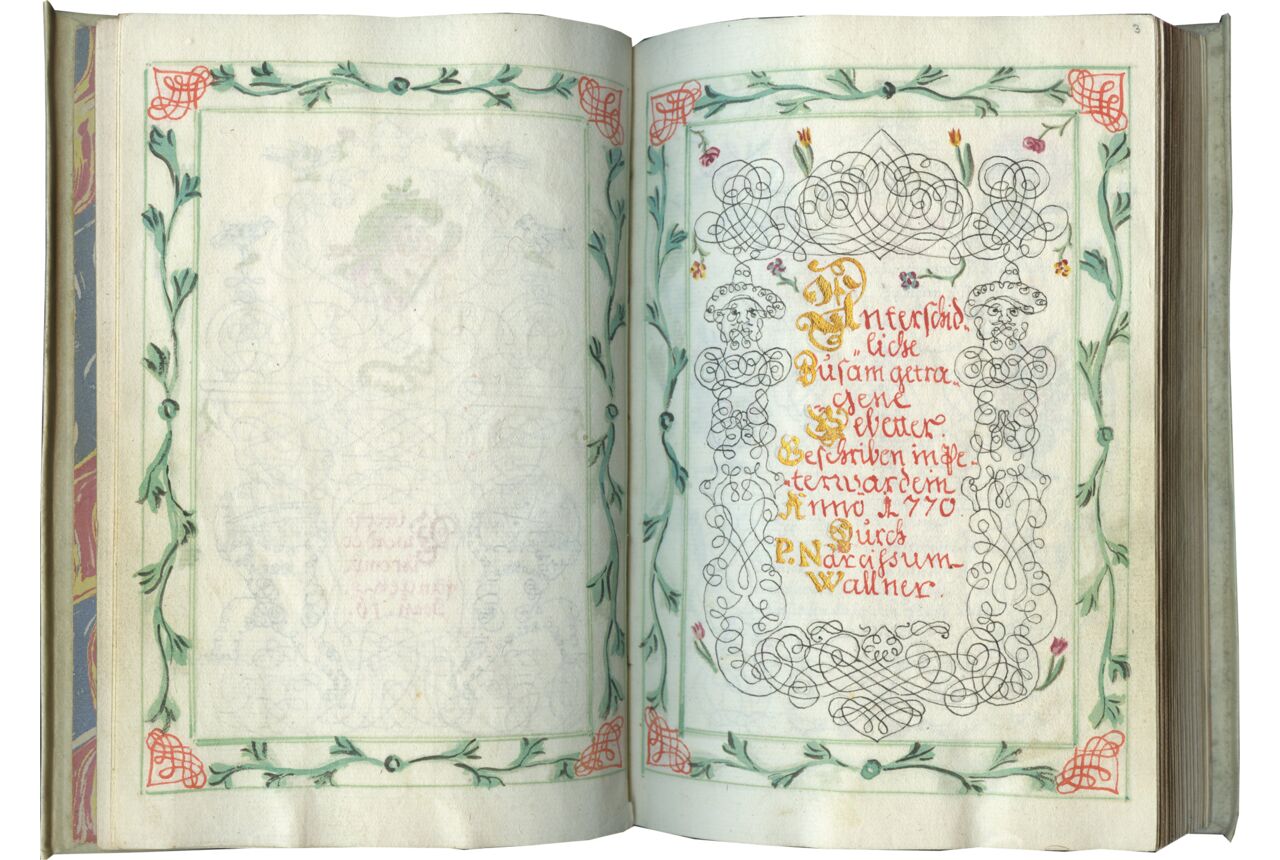 3
In
Unterschid„
„liche
Zusam getra„
gene
Gebetter.
Geschriben in Pe„
terwardein
Anno 1770
Durch
P. Narcissum
Wallner.